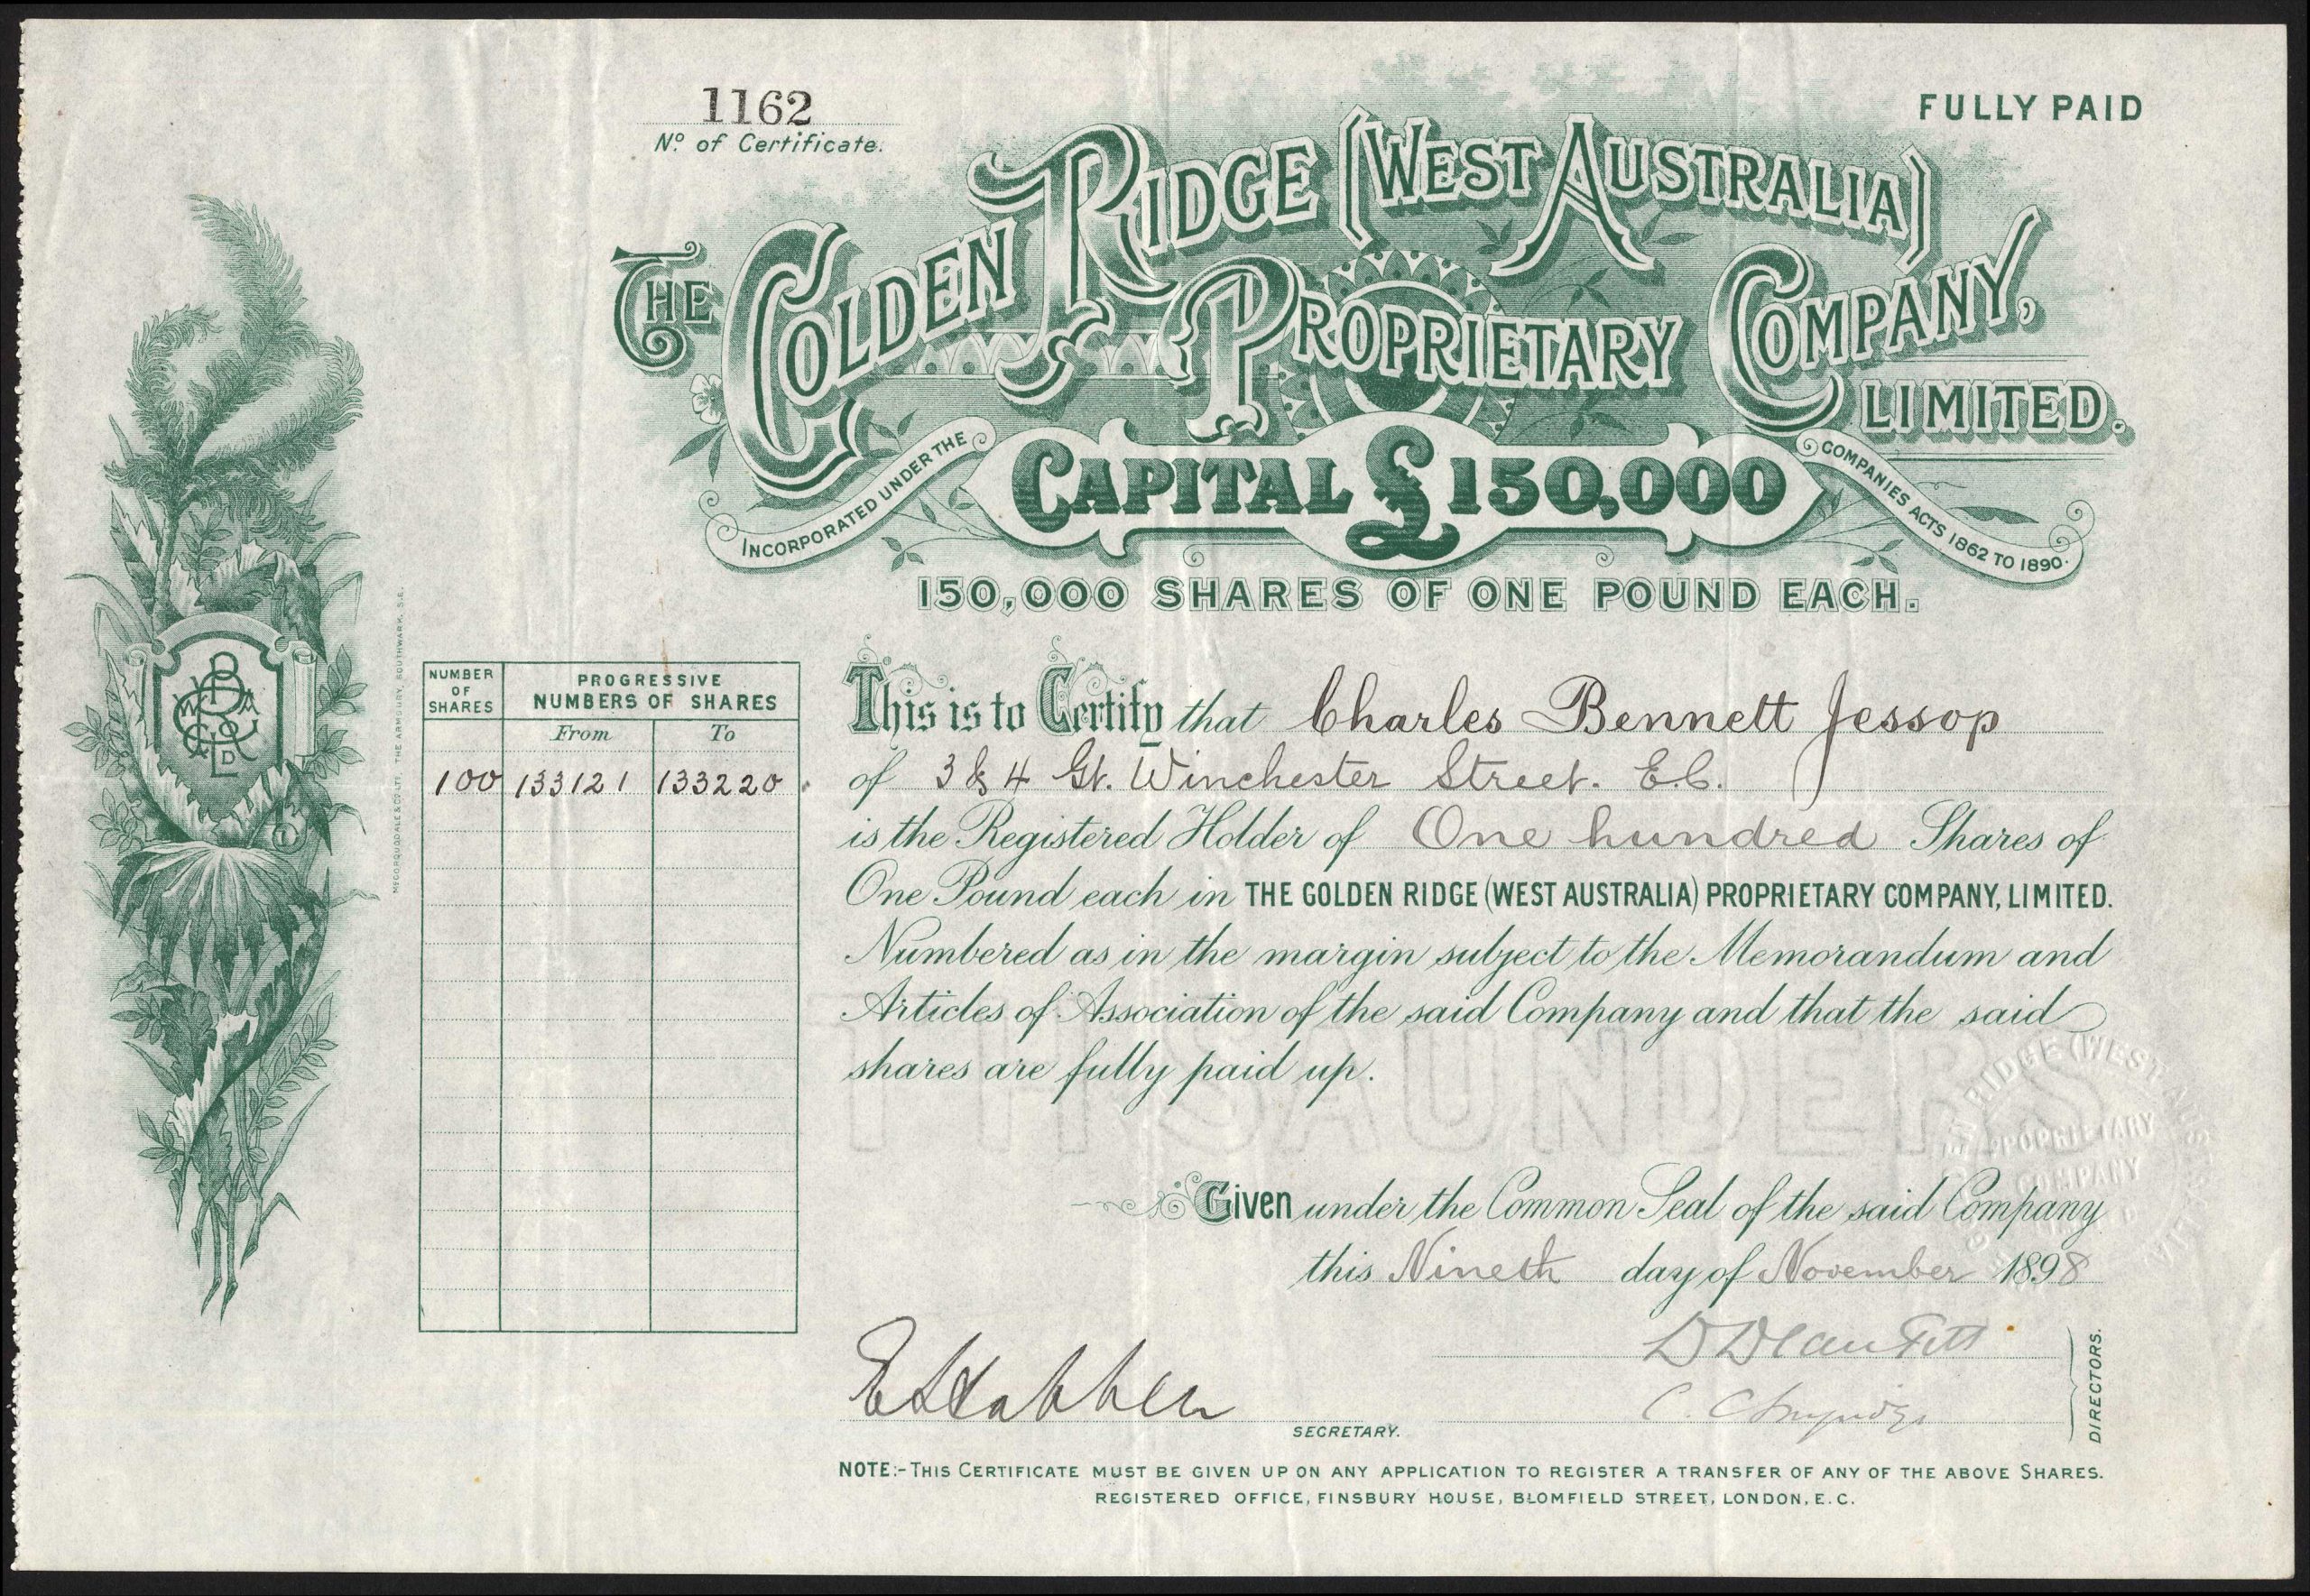 1162
No. of Certificate.
FULLY PAID
THE GOLDEN RIDGE (WEST AUSTRALIA)
PROPRIETARY COMPANY,
LIMITED.
INCORPORATED UNDER THE
COMPANIES ACTS 1862 TO 1890.
CAPITAL £150,000
150,000 SHARES OF ONE POUND EACH.
McCORQUODALE & CO. LTD. THE ARMOURY, SOUTHWARK, S.E.
NUMBER OF SHARES
PROGRESSIVE
NUMBERS OF SHARES
From To
100 133121 133220
This is to Certify that Charles Bennett Jessop
of 3 & 4 Gt. Winchester Street. E.C.
is the Registered Holder of One hundred Shares of
One Pound each in THE GOLDEN RIDGE (WEST AUSTRALIA) PROPRIETARY COMPANY, LIMITED.
Numbered as in the margin subject to the Memorandum and
Articles of Association of the said Company and that the said
shares are fully paid up.
T H SAUNDERS
RIDGE (WEST AUSTRALIA)
PROPRIETARY
COMPANY
Given under the Common Seal of the said Company
this Nineth day of November 1898
SECRETARY.
DIRECTORS.
NOTE:- THIS CERTIFICATE MUST BE GIVEN UP ON ANY APPLICATION TO REGISTER A TRANSFER OF ANY OF THE ABOVE SHARES.
REGISTERED OFFICE, FINSBURY HOUSE, BLOMFIELD STREET, LONDON, E.C.